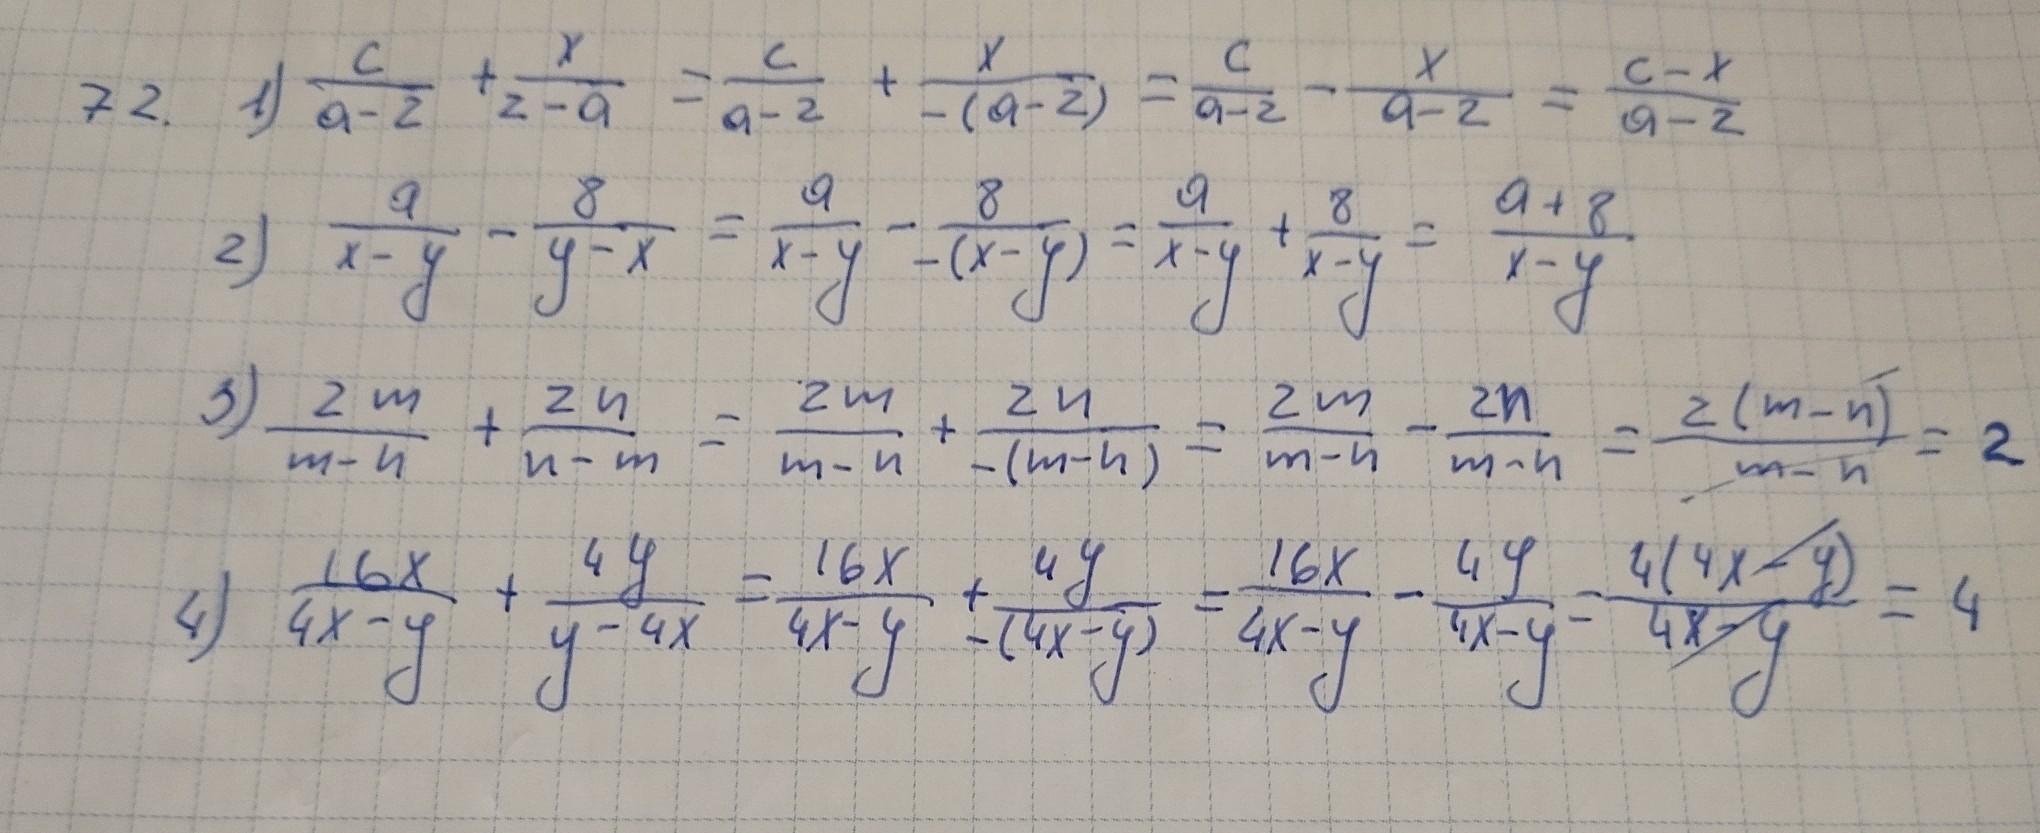 72. 1) c/(a-2) + x/(2-a) = c/(a-2) + x/(-(a-2)) = c/(a-2) - x/(a-2) = (c-x)/(a-2)
2) a/(x-y) - 8/(y-x) = a/(x-y) - 8/(-(x-y)) = a/(x-y) + 8/(x-y) = (a+8)/(x-y)
3) 2m/(m-n) + 2n/(n-m) = 2m/(m-n) + 2n/(-(m-n)) = 2m/(m-n) - 2n/(m-n) = 2(m-n)/(m-n) = 2
4) 16x/(4x-y) + 4y/(y-4x) = 16x/(4x-y) + 4y/(-(4x-y)) = 16x/(4x-y) - 4y/(4x-y) = 4(4x-y)/(4x-y) = 4